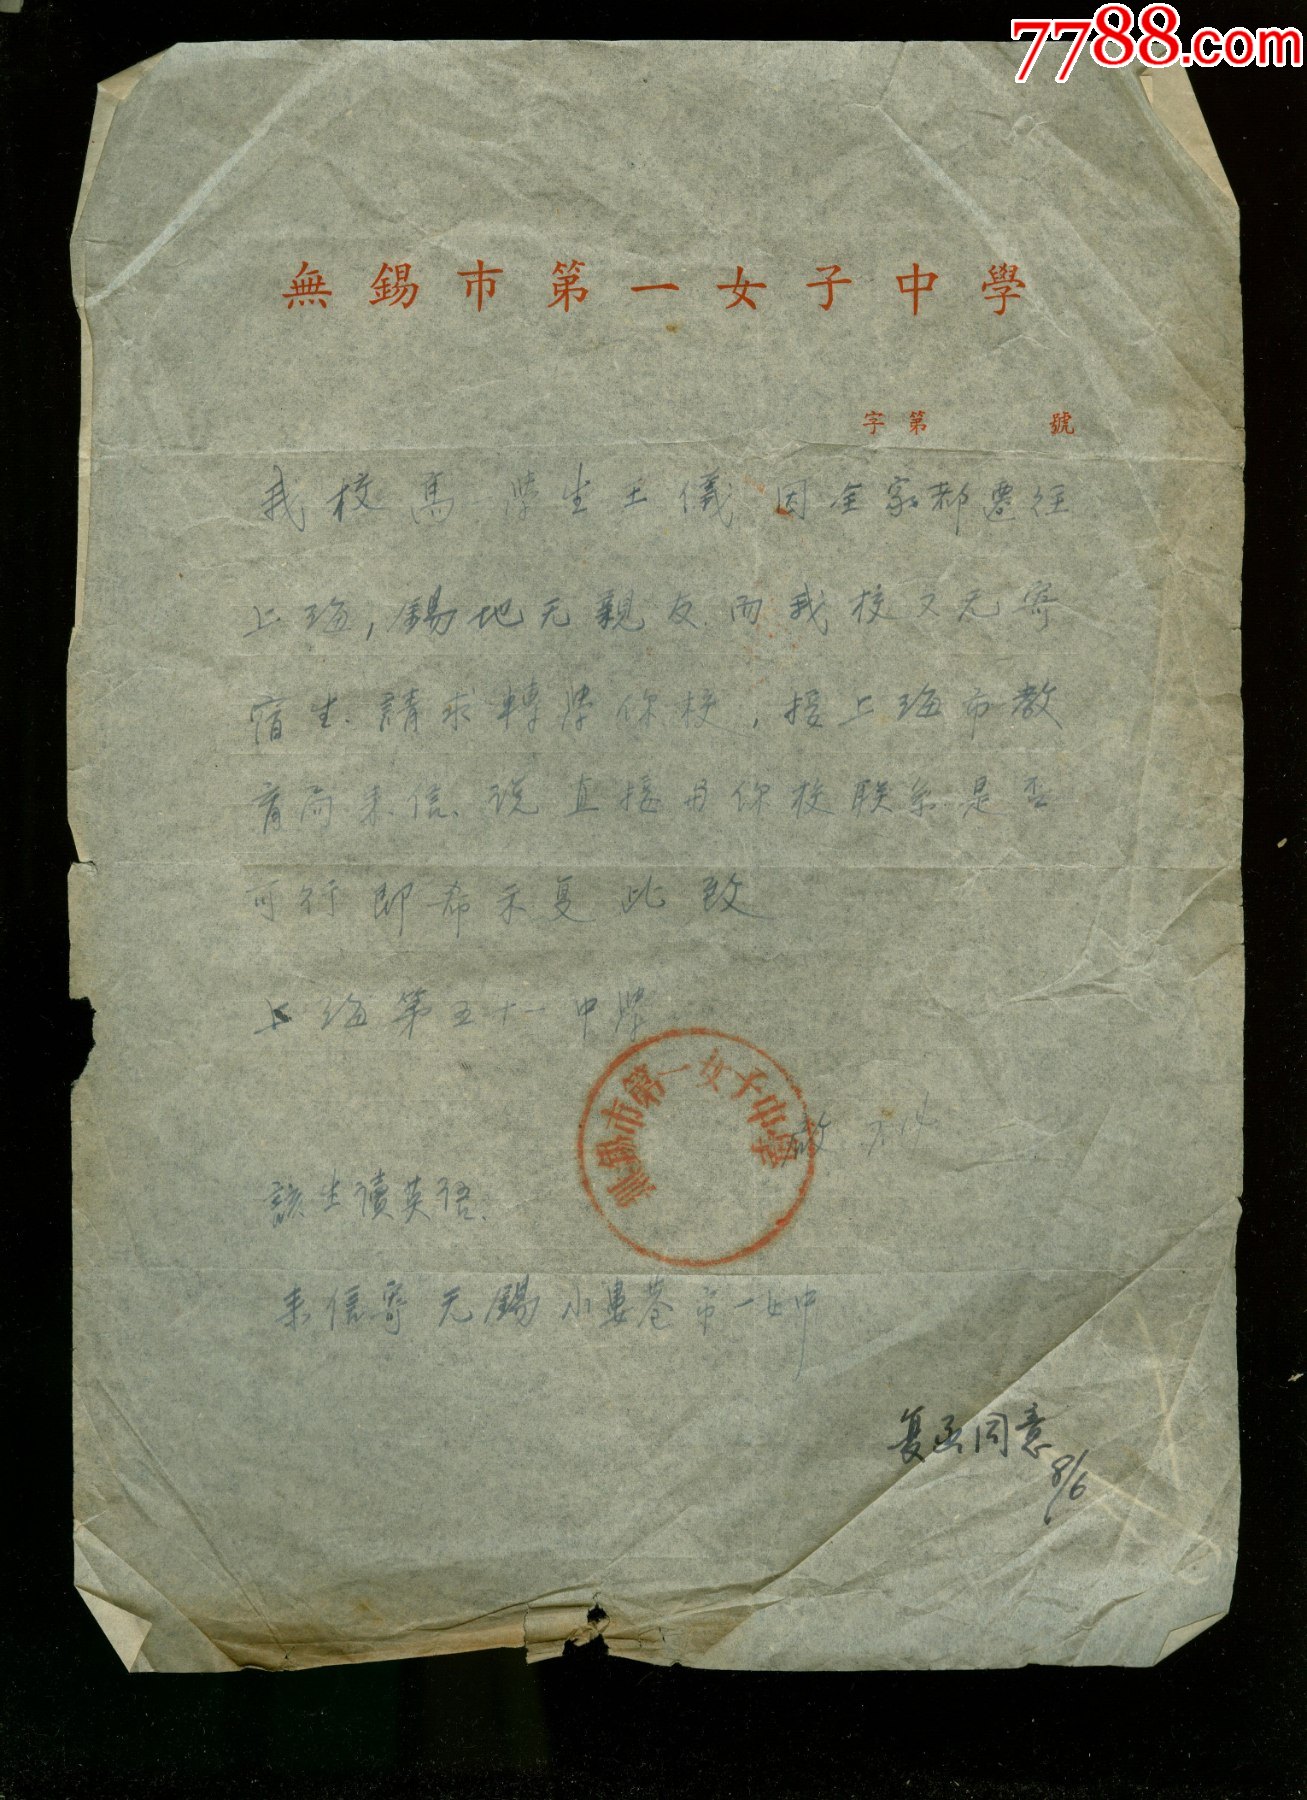 7788.com
無錫市第一女子中學
字第 號
我校高一學生王儀因全家都遷往
上海,錫地无親友.而我校又无寄
宿生.請求轉學你校,接上海市教
育局来信.说直接与你校联系是否
可行即希示复此致
上海第五十一中學
無錫市第一女子中學
啟
該生讀英语.
来信寄 无錫小婁巷市一女中
复函同意
8/6